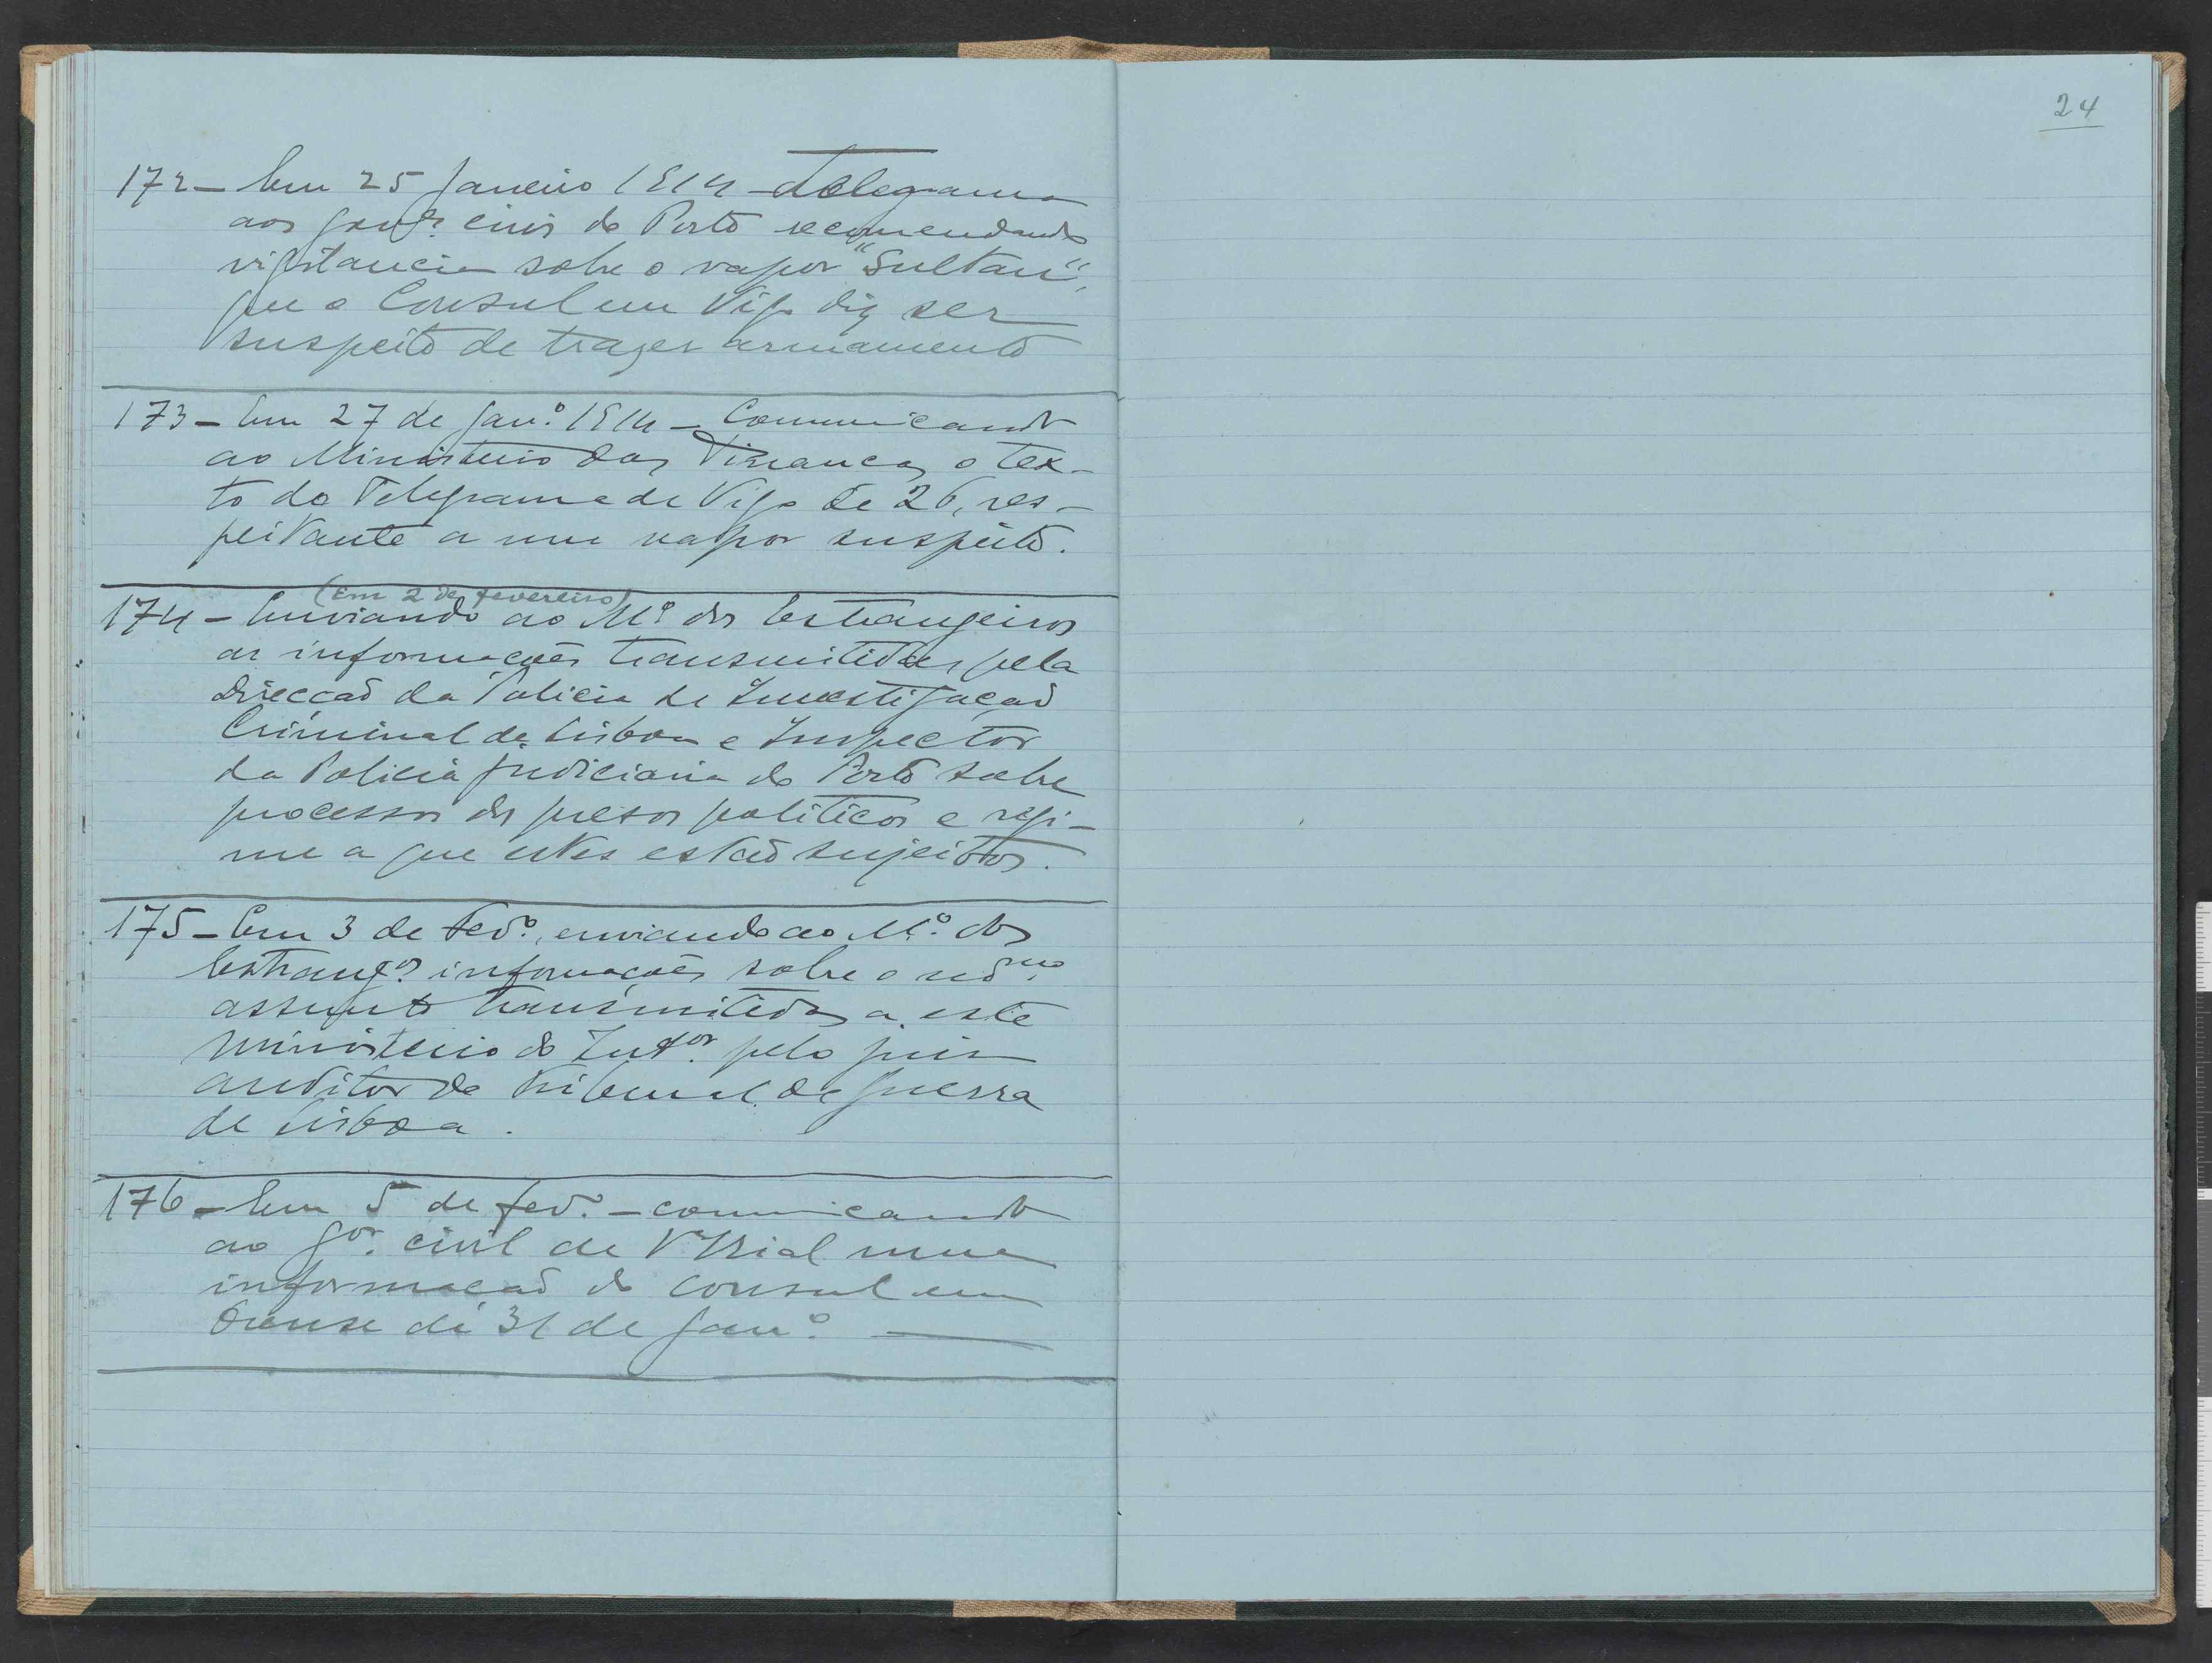 24
172 - Em 25 Janeiro 1914 - Telegrama
aos gov.es civis do Porto recomendando
vigilancia sobre o vapor "Sultan",
que o Consul em Vigo diz ser
suspeito de trazer armamento
173 - Em 27 de Jan.º 1914 - Comunicando
ao Ministerio das Finanças o tex-
to do Telegrama de Vigo de 26, res-
peitante a um vapor suspeito.
(Em 2 de fevereiro)
174 - Enviando ao M.º dos Estrangeiros
as informações transmitidas pela
Direcção da Policia de Investigação
Criminal de Lisboa e Inspector
da Policia judiciaria do Porto sobre
processos dos presos politicos e regi-
me a que estes estão sujeitos.
175 - Em 3 de Fev.º, enviando ao M.º dos
Estrang.os informações sobre o
assunto transmitidas a este
ministerio do Int.or pelo juiz
auditor do Tribunal de guerra
de Lisboa.
176 - Em 5 de fev.º - comunicando
ao g.or civil de V.ª Rial uma
informação do consul em
Orense de 31 de Jan.º